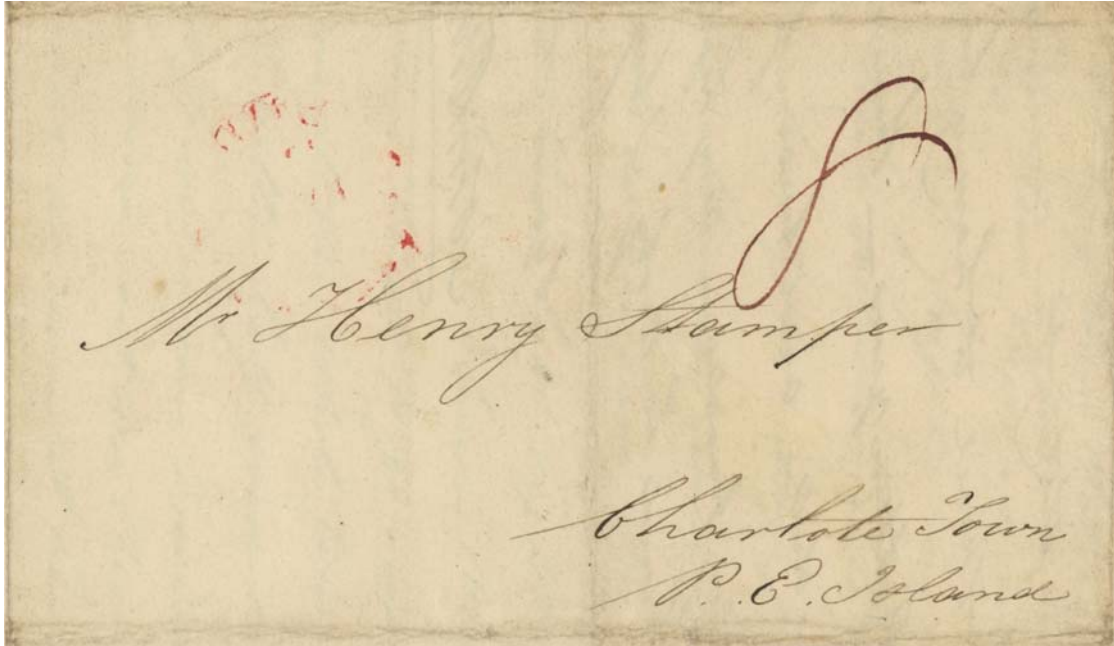 8
Mr Henry Stamper
Charlote Town
P. E. Island